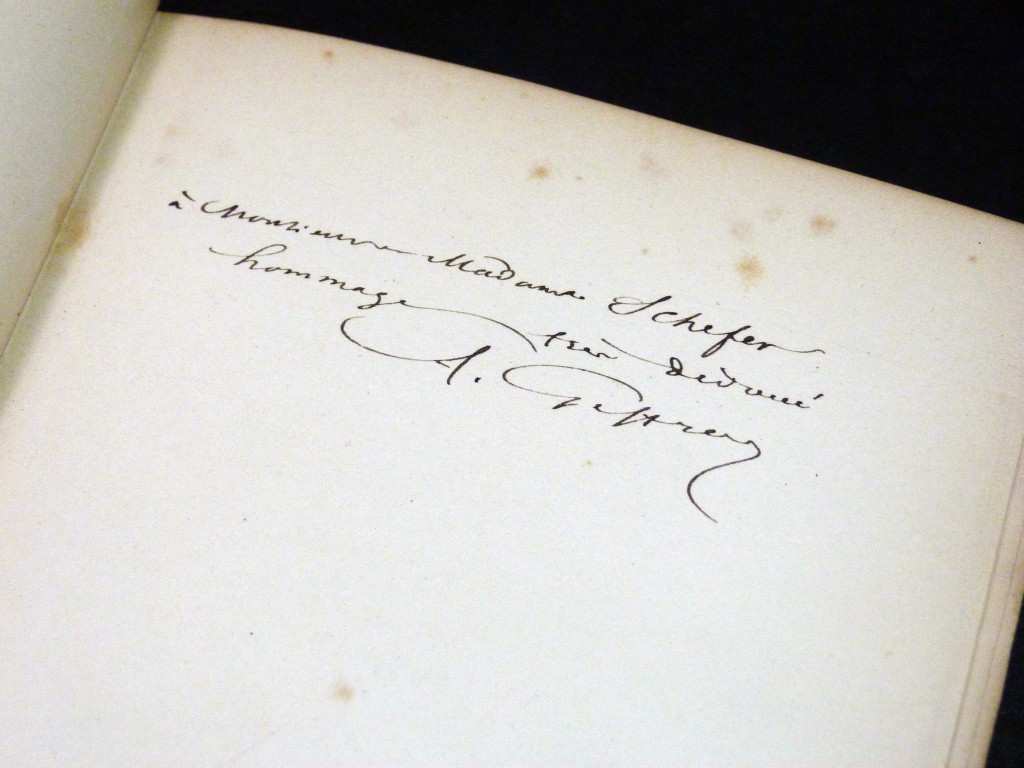 à Monsieur e Madame Schefer
hommage très dévoué
A. Geffroy